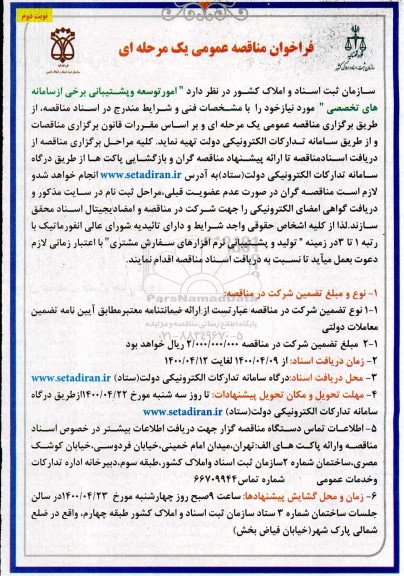 نوبت دوم
فراخوان مناقصه عمومی یک مرحله ای
سازمان ثبت اسناد و املاک کشور در نظر دارد " امورتوسعه وپشتیبانی برخی ازسامانه
های تخصصی " مورد نیازخود را با مشخصات فنی و شرایط مندرج در اسناد مناقصه، از
طریق برگزاری مناقصه عمومی یک مرحله ای و بر اساس مقررات قانون برگزاری مناقصات
و از طریق سامانه تدارکات الکترونیکی دولت تهیه نماید. کلیه مراحل برگزاری مناقصه از
دریافت اسنادمناقصه تا ارائه پیشنهاد مناقصه گران و بازگشایی پاکت ها از طریق درگاه
سامانه تدارکات الکترونیکی دولت(ستاد)به آدرس www.setadiran.ir انجام خواهد شدو
لازم است مناقصه گران در صورت عدم عضویت قبلی،مراحل ثبت نام در سایت مذکور و
دریافت گواهی امضای الکترونیکی را جهت شرکت در مناقصه و امضادیجیتال اسناد محقق
سازند.لذا از کلیه اشخاص حقوقی واجد شرایط و دارای تائیدیه شورای عالی انفورماتیک با
رتبه ۱ تا ۳در زمینه " تولید و پشتیبانی نرم افزارهای سفارش مشتری" با اعتبار زمانی لازم
دعوت بعمل میآید تا نسبت به دریافت اسناد مناقصه اقدام نمایند.
۱- نوع و مبلغ تضمین شرکت در مناقصه:
۱-۱ نوع تضمین شرکت در مناقصه عبارتست از ارائه ضمانتنامه معتبرمطابق آیین نامه تضمین
معاملات دولتی
۱-۲ مبلغ تضمین شرکت در مناقصه ۲/۰۰۰/۰۰۰/۰۰۰ ریال خواهد بود
۲- زمان دریافت اسناد: از ۱۴۰۰/۰۴/۰۹ لغایت ۱۴۰۰/۰۴/۱۲
۳- محل دریافت اسناد:درگاه سامانه تدارکات الکترونیکی دولت(ستاد) www.setadiran.ir
۴- مهلت تحویل و مکان تحویل پیشنهادات: تا روز سه شنبه مورخ ۱۴۰۰/۰۴/۲۲ازطریق درگاه
سامانه تدارکات الکترونیکی دولت(ستاد) www.setadiran.ir
۵- اطلاعات تماس دستگاه مناقصه گزار جهت دریافت اطلاعات بیشتر در خصوص اسناد
مناقصه وارائه پاکت های الف:تهران،میدان امام خمینی،خیابان فردوسی،خیابان کوشک
مصری،ساختمان شماره ۲سازمان ثبت اسناد واملاک کشور،طبقه سوم،دبیرخانه اداره تدارکات
وخدمات عمومی شماره تماس۶۶۷۰۹۹۴۴
۶- زمان و محل گشایش پیشنهادها: ساعت ۹صبح روز چهارشنبه مورخ ۱۴۰۰/۰۴/۲۳در سالن
جلسات ساختمان شماره ۳ ستاد سازمان ثبت اسناد و املاک کشور طبقه چهارم، واقع در ضلع
شمالی پارک شهر(خیابان فیاض بخش)
ParsNamadData
پایگاه اطلاع رسانی مناقصه و مزایده
۰۲۱-۸۸۳۴۹۶۷۰-۵